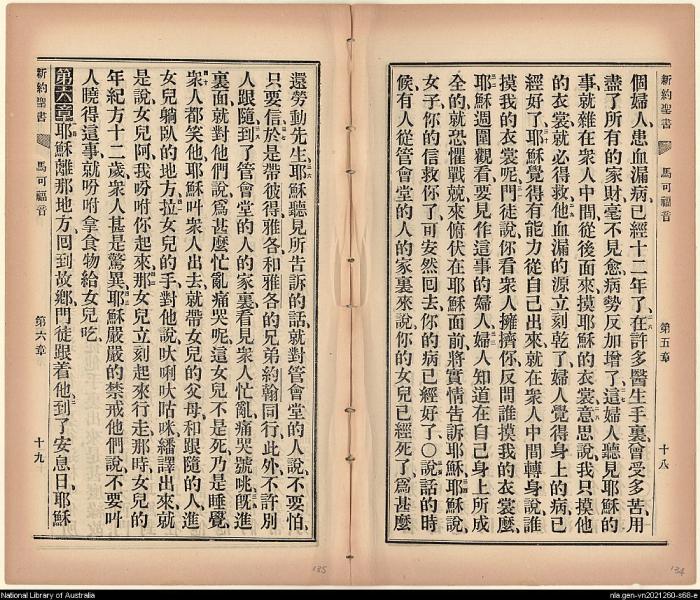 新約聖書
馬可福音
第五章
十八
個婦人、患血漏病、已經十二年了、在許多醫生手裏、曾受多苦、用
盡了所有的家財、毫不見愈、病勢反加增了、這婦人聽見耶穌的
事、就雜在衆人中間、從後面來、摸耶穌的衣裳、意思說、我只摸他
的衣裳、就必得救、他血漏的源立刻乾了、婦人覺得身上的病已
經好了、耶穌覺得有能力從自己出來、就在衆人中間、轉身說、誰
摸我的衣裳呢、門徒說、你看衆人擁擠你、反問誰摸我的衣裳麼、
耶穌週圍觀看、要見作這事的婦人、婦人知道在自己身上所成
全的、就恐懼戰兢、來俯伏在耶穌面前、將實情告訴耶穌、耶穌說、
女子、你的信救你了、可安然回去、你的病已經好了、○說話的時
候、有人從管會堂的人的家裏來、說、你的女兒已經死了、爲甚麼
還勞動先生、耶穌聽見所告訴的話、就對管會堂的人說、不要怕、
只要信、於是帶彼得、雅各、和雅各的兄弟約翰同行、此外不許別
人跟隨、到了管會堂的人的家裏、看見衆人忙亂痛哭號咷、旣進
裏面、就對他們說、爲甚麼忙亂痛哭呢、這女兒不是死、乃是睡覺、
衆人都笑他、耶穌叫衆人出去、就帶女兒的父母、和跟隨的人、進
女兒躺臥的地方、拉女兒的手、對他說、吠唎吠咕咪、繙譯出來、就
是說、女兒阿、我吩咐你起來、那女兒立刻起來行走、那時女兒的
年紀方十二歲、衆人甚是驚異、耶穌嚴嚴的禁戒他們說、不要叫
人曉得這事、就吩咐拿食物給女兒吃、
第六章 耶穌離那地方、回到故鄉、門徒跟着他、到了安息日、耶穌
新約聖書
馬可福音
第六章
十九
135
134
National Library of Australia
nla.gen-vn2021260-s68-e